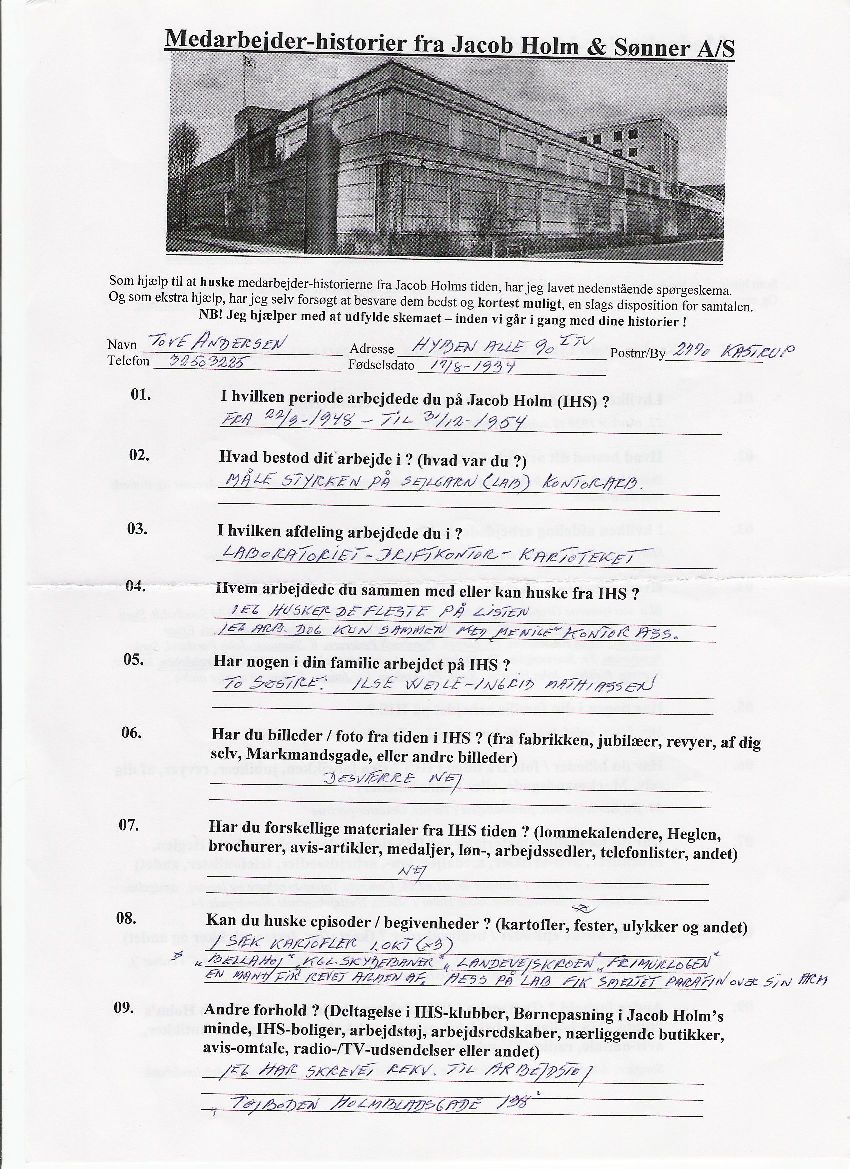 Medarbejder-historier fra Jacob Holm & Sønner A/S
Som hjælp til at huske medarbejder-historierne fra Jacob Holms tiden, har jeg lavet nedenstående spørgeskema.
Og som ekstra hjælp, har jeg selv forsøgt at besvare dem bedst og kortest muligt, en slags disposition for samtalen.
NB! Jeg hjælper med at udfylde skemaet – inden vi går i gang med dine historier !
Navn TOVE ANDERSEN Adresse HYBEN ALLE 90 I TV Postnr/By 2770 KASTRUP
Telefon 32503225 Fødselsdato 17/8-1934
01. I hvilken periode arbejdede du på Jacob Holm (IHS) ?
FRA 22/9-1948 - TIL 31/12-1954
02. Hvad bestod dit arbejde i ? (hvad var du ?)
MÅLE STYRKEN PÅ SEJLGARN (LAB) KONTORARB.
03. I hvilken afdeling arbejdede du i ?
LABORATORIET - DRIFTKONTOR - KARTOTEKET
04. Hvem arbejdede du sammen med eller kan huske fra IHS ?
JEG HUSKER DE FLESTE PÅ LISTEN
JEG ARB. DOG KUN SAMMEN MED „MENIGE" KONTOR ASS.
05. Har nogen i din familie arbejdet på IHS ?
TO SØSTRE: ILSE WEJLE - INGRID MATHIASSEN
06. Har du billeder / foto fra tiden i IHS ? (fra fabrikken, jubilæer, revyer, af dig
selv, Markmandsgade, eller andre billeder)
DESVÆRRE NEJ
07. Har du forskellige materialer fra IHS tiden ? (lommekalendere, Heglen,
brochurer, avis-artikler, medaljer, løn-, arbejdssedler, telefonlister, andet)
NEJ
08. Kan du huske episoder / begivenheder ? (kartofler, fester, ulykker og andet)
1 SÆK KARTOFLER 1. OKT (x3)
„BELLAHØJ" „KGL. SKYDEBANER" „LANDEVEJSKROEN" „FRIMURLOGEN"
EN MAND FIK REVET ARMEN AF, HESS PÅ LAB FIK SMELTET PARAFIN OVER SIN ARM
09. Andre forhold ? (Deltagelse i IHS-klubber, Børnepasning i Jacob Holm's
minde, IHS-boliger, arbejdstøj, arbejdsredskaber, nærliggende butikker,
avis-omtale, radio-/TV-udsendelser eller andet)
JEG HAR SKREVET REKV. TIL ARBEJDSTØJ
„TØJBODEN HOLMBLADSGADE 198"